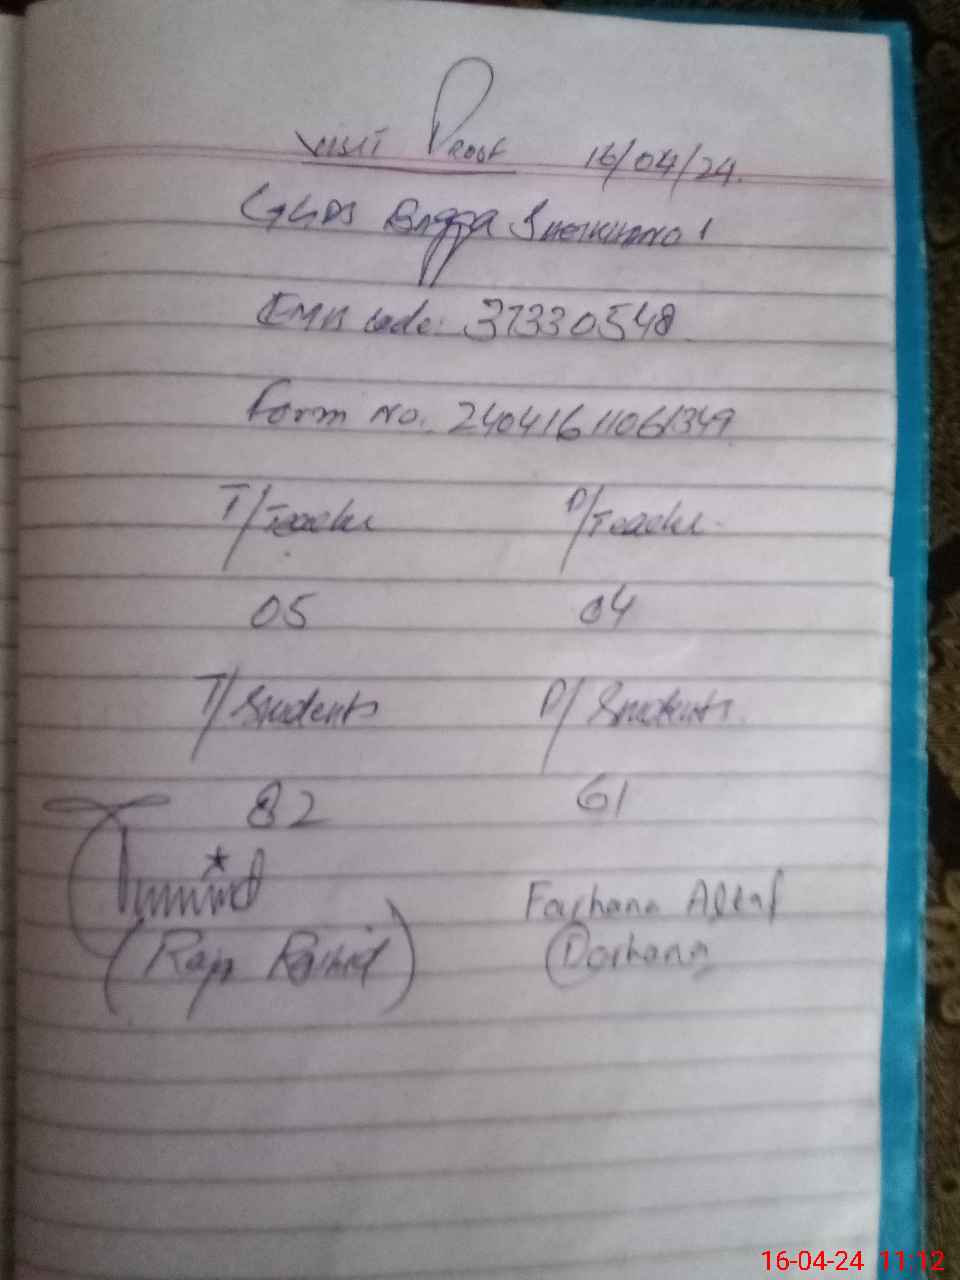 VISIT PROOF 16/04/24.
GGPS Bagga Sheikhan no 1
EMIS Code: 37330548
Form No. 24041611061349
T/Teacher P/Teacher.
05 04
T/Students P/Students.
82 61
(Raja Rashid) Farhana Altaf
16-04-24 11:12